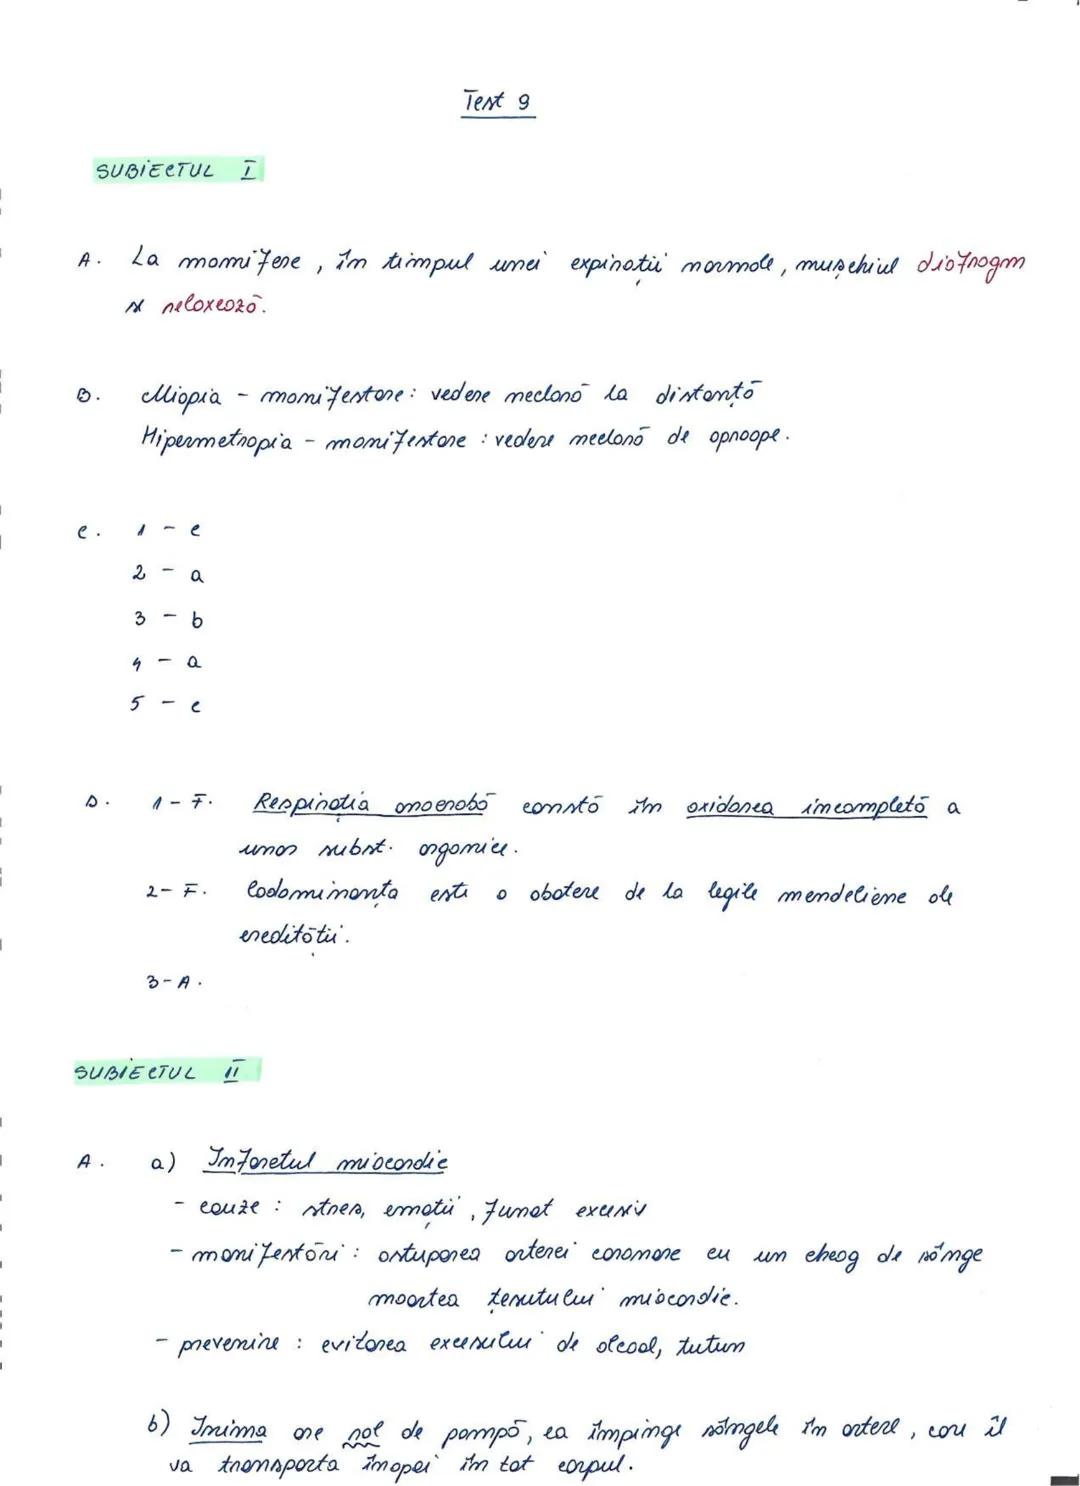 Test 9
SUBIECTUL I
A. La mamifere, în timpul unei expirații normale, mușchiul diafragm
se relaxează.
B. Miopia - manifestare: vedere neclară la distanță
Hipermetropia - manifestare: vedere neclară de aproape.
C. 1 - c
2 - a
3 - b
4 - a
5 - c
D. 1 - F. Respirația anaerobă constă în oxidarea incompletă a
unor subst. organice.
2 - F. Codominanța este o abatere de la legile mendeliene ale
eredității.
3 - A.
SUBIECTUL II
A. a) Infarctul miocardic
- cauze: stres, emoții, fumat excesiv
- manifestări: astuparea arterei coronare cu un cheag de sânge
moartea țesutului miocardic.
- prevenire: evitarea excesului de alcool, tutun
b) Inima are rol de pompă, ea împinge sângele în artere, care îl
va transporta înapoi în tot corpul.